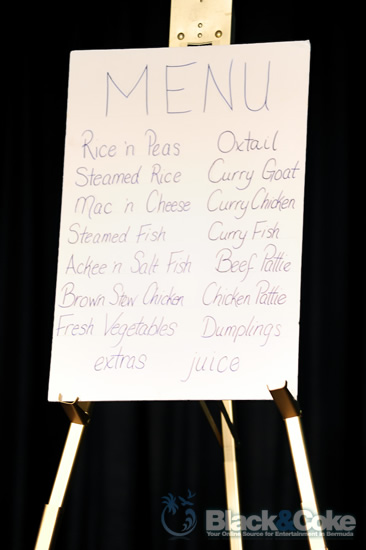 MENU
Rice 'n Peas Oxtail
Steamed Rice Curry Goat
Mac 'n Cheese Curry Chicken
Steamed Fish Curry Fish
Ackee 'n Salt Fish Beef Pattie
Brown Stew Chicken Chicken Pattie
Fresh Vegetables Dumplings
extras juice
Black&Coke
Your Online Source for Entertainment in Bermuda